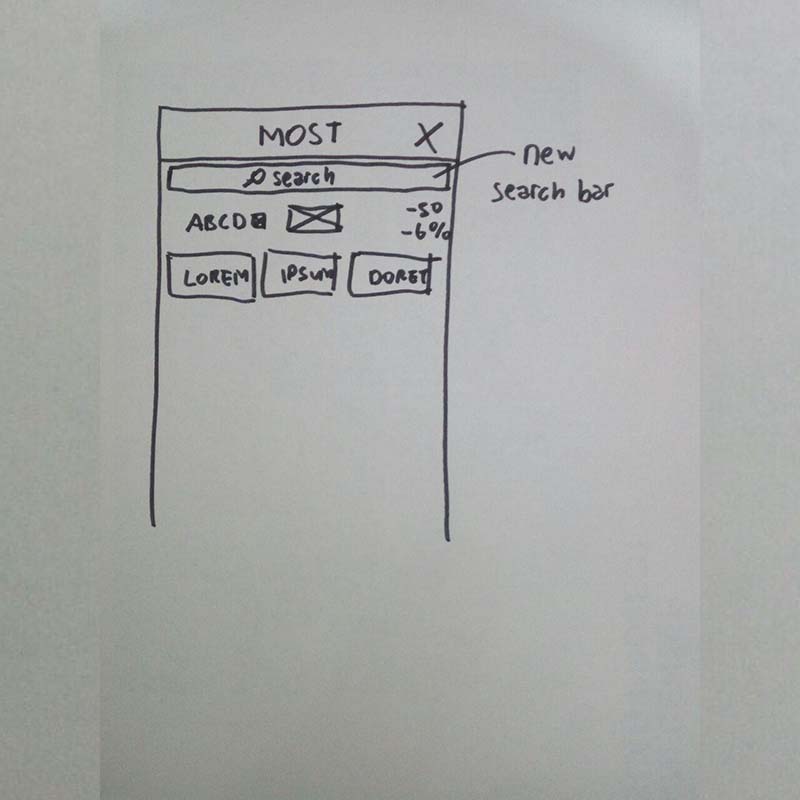 MOST X
search
new
search bar
ABCD
-50
-6%
LOREM IPSUM DORET